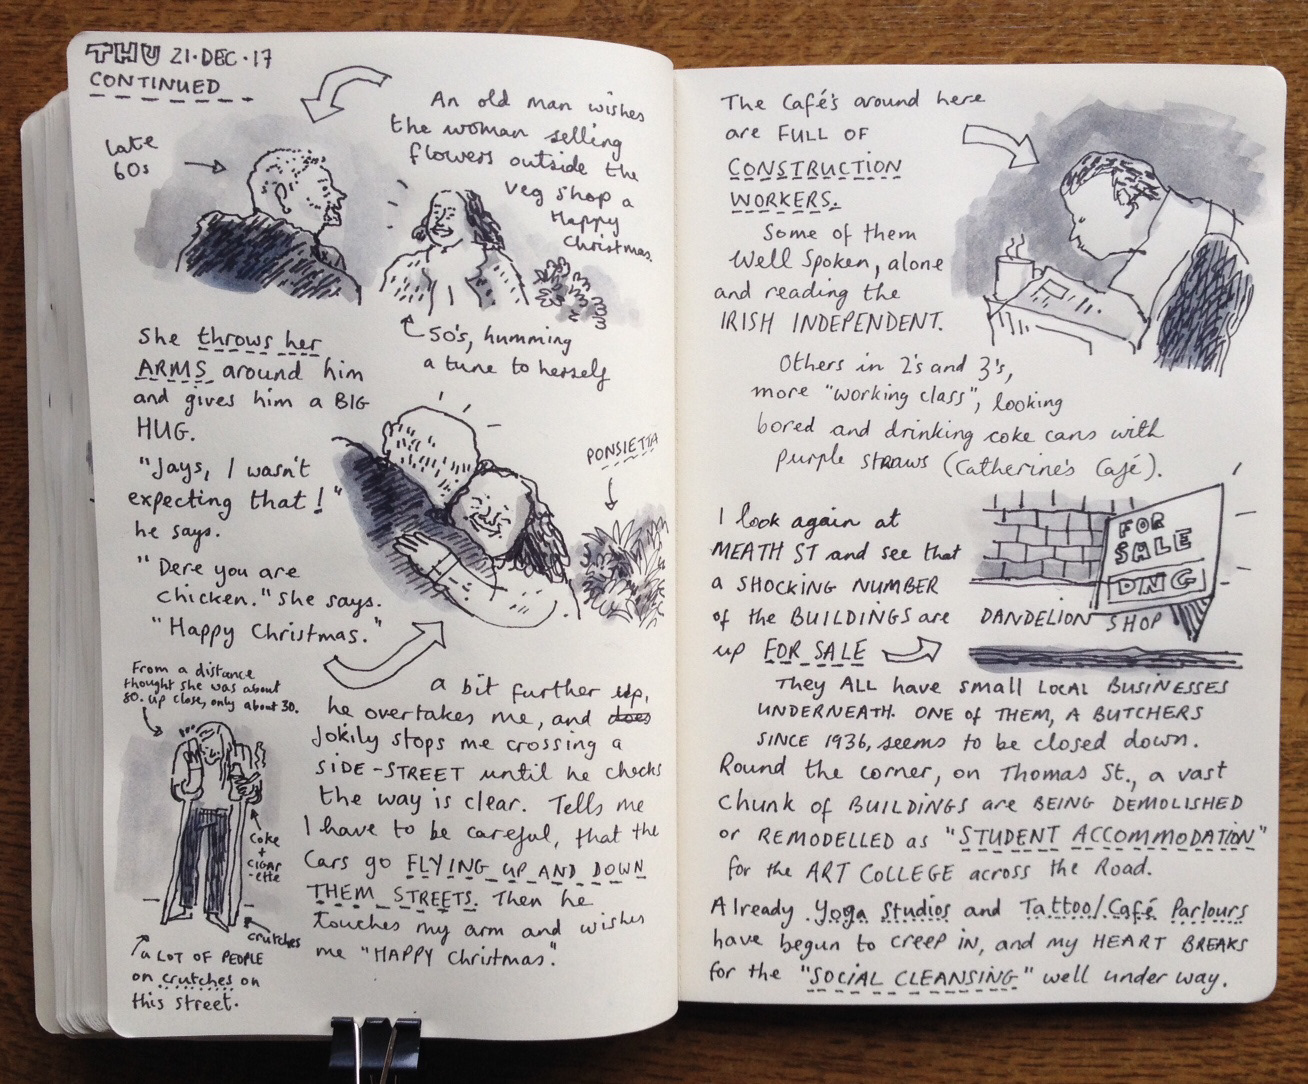 THU 21·DEC·17
CONTINUED
An old man wishes
the woman selling
flowers outside the
veg shop a
Happy
Christmas.
late
60s
50's, humming
a tune to herself
She throws her
ARMS around him
and gives him a BIG
HUG.
"Jays, I wasn't
expecting that!"
he says.
"Dere you are
chicken." She says.
"Happy Christmas."
PONSIETTA
From a distance
thought she was about
80. Up close, only about 30.
coke
+
CIGAR
-ette
crutches
a LOT OF PEOPLE
on crutches on
this street.
a bit further up,
he overtakes me, and does
Jokily stops me crossing a
SIDE-STREET until he checks
the way is clear. Tells me
I have to be careful, that the
Cars go FLYING UP AND DOWN
THEM STREETS. Then he
touches my arm and wishes
me "HAPPY Christmas".
The Café's around here
are FULL OF
CONSTRUCTION
WORKERS.
Some of them
Well Spoken, alone
and reading the
IRISH INDEPENDENT.
Others in 2's and 3's,
more "working class", looking
bored and drinking coke cans with
purple STRAWS (Catherine's Café).
I look again at
MEATH ST and see that
a SHOCKING NUMBER
of the BUILDINGS are
up FOR SALE
FOR
SALE
DNG
DANDELION SHOP
They ALL have small LOCAL BUSINESSES
UNDERNEATH. ONE OF THEM, A BUTCHERS
SINCE 1936, seems to be closed down.
Round the corner, on Thomas St., a vast
Chunk of BUILDINGS are BEING DEMOLISHED
or REMODELLED as "STUDENT ACCOMMODATION"
for the ART COLLEGE across the Road.
Already Yoga Studios and Tattoo/Café Parlours
have begun to creep in, and my HEART BREAKS
for the "SOCIAL CLEANSING" well under way.